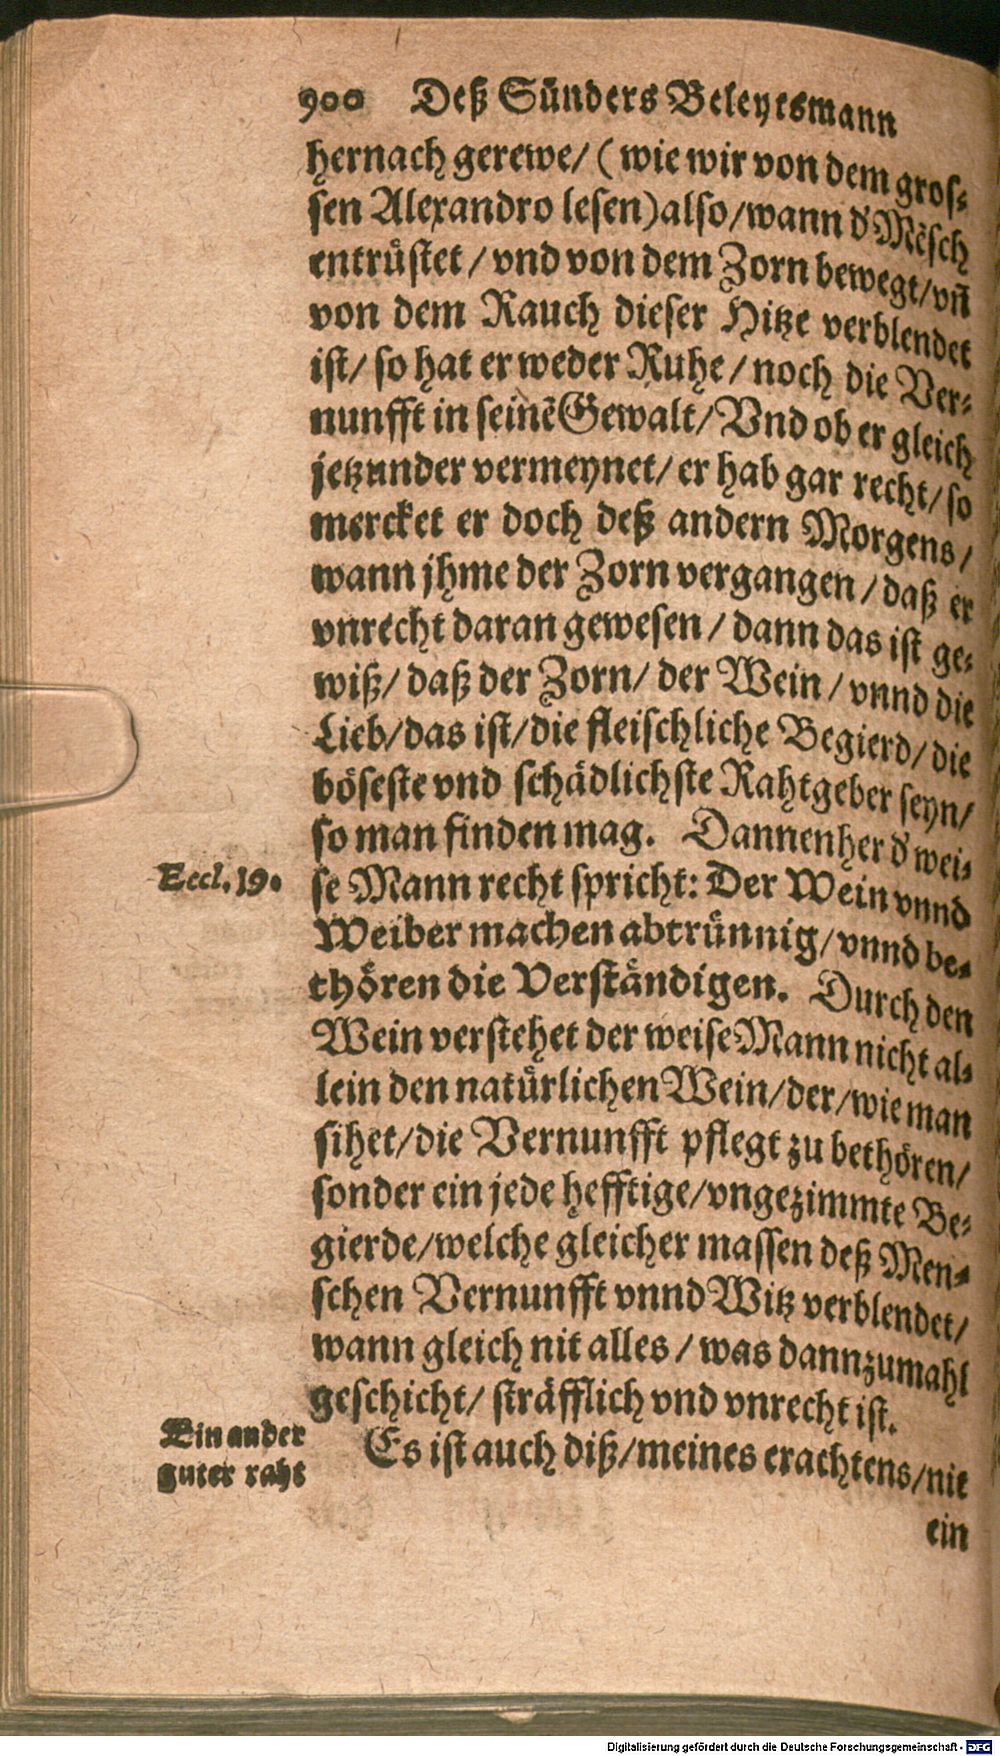 900 Deß Sünders Beleytsmann
hernach gerewe/ (wie wir von dem gros-
sen Alexandro lesen) also/wann d' Mẽsch
entrüstet/ vnd von dem Zorn bewegt/vñ
von dem Rauch dieser Hitze verblendet
ist/ so hat er weder Ruhe/ noch die Ver-
nunfft in seinẽ Gewalt/ Vnd ob er gleich
jetzunder vermeynet/ er hab gar recht/ so
mercket er doch deß andern Morgens/
wann jhme der Zorn vergangen/ daß er
vnrecht daran gewesen/ dann das ist ge-
wiß/ daß der Zorn/ der Wein/ vnnd die
Lieb/das ist/die fleischliche Begierd/die
böseste vnd schädlichste Rahtgeber seyn/
so man finden mag. Dannenher d' wei-
Eccl. 19.
se Mann recht spricht: Der Wein vnnd
Weiber machen abtrünnig/ vnnd be-
thören die Verständigen. Durch den
Wein verstehet der weise Mann nicht al-
lein den natürlichen Wein/der/wie man
sihet/die Vernunfft pflegt zu bethören/
sonder ein jede hefftige/vngezimmte Be-
gierde/welche gleicher massen deß Men-
schen Vernunfft vnnd Witz verblendet/
wann gleich nit alles/ was dannzumahl
geschicht/ sträfflich vnd vnrecht ist.
Ein ander
guter raht
Es ist auch diß/meines erachtens/nit
ein
Digitalisierung gefördert durch die Deutsche Forschungsgemeinschaft - DFG